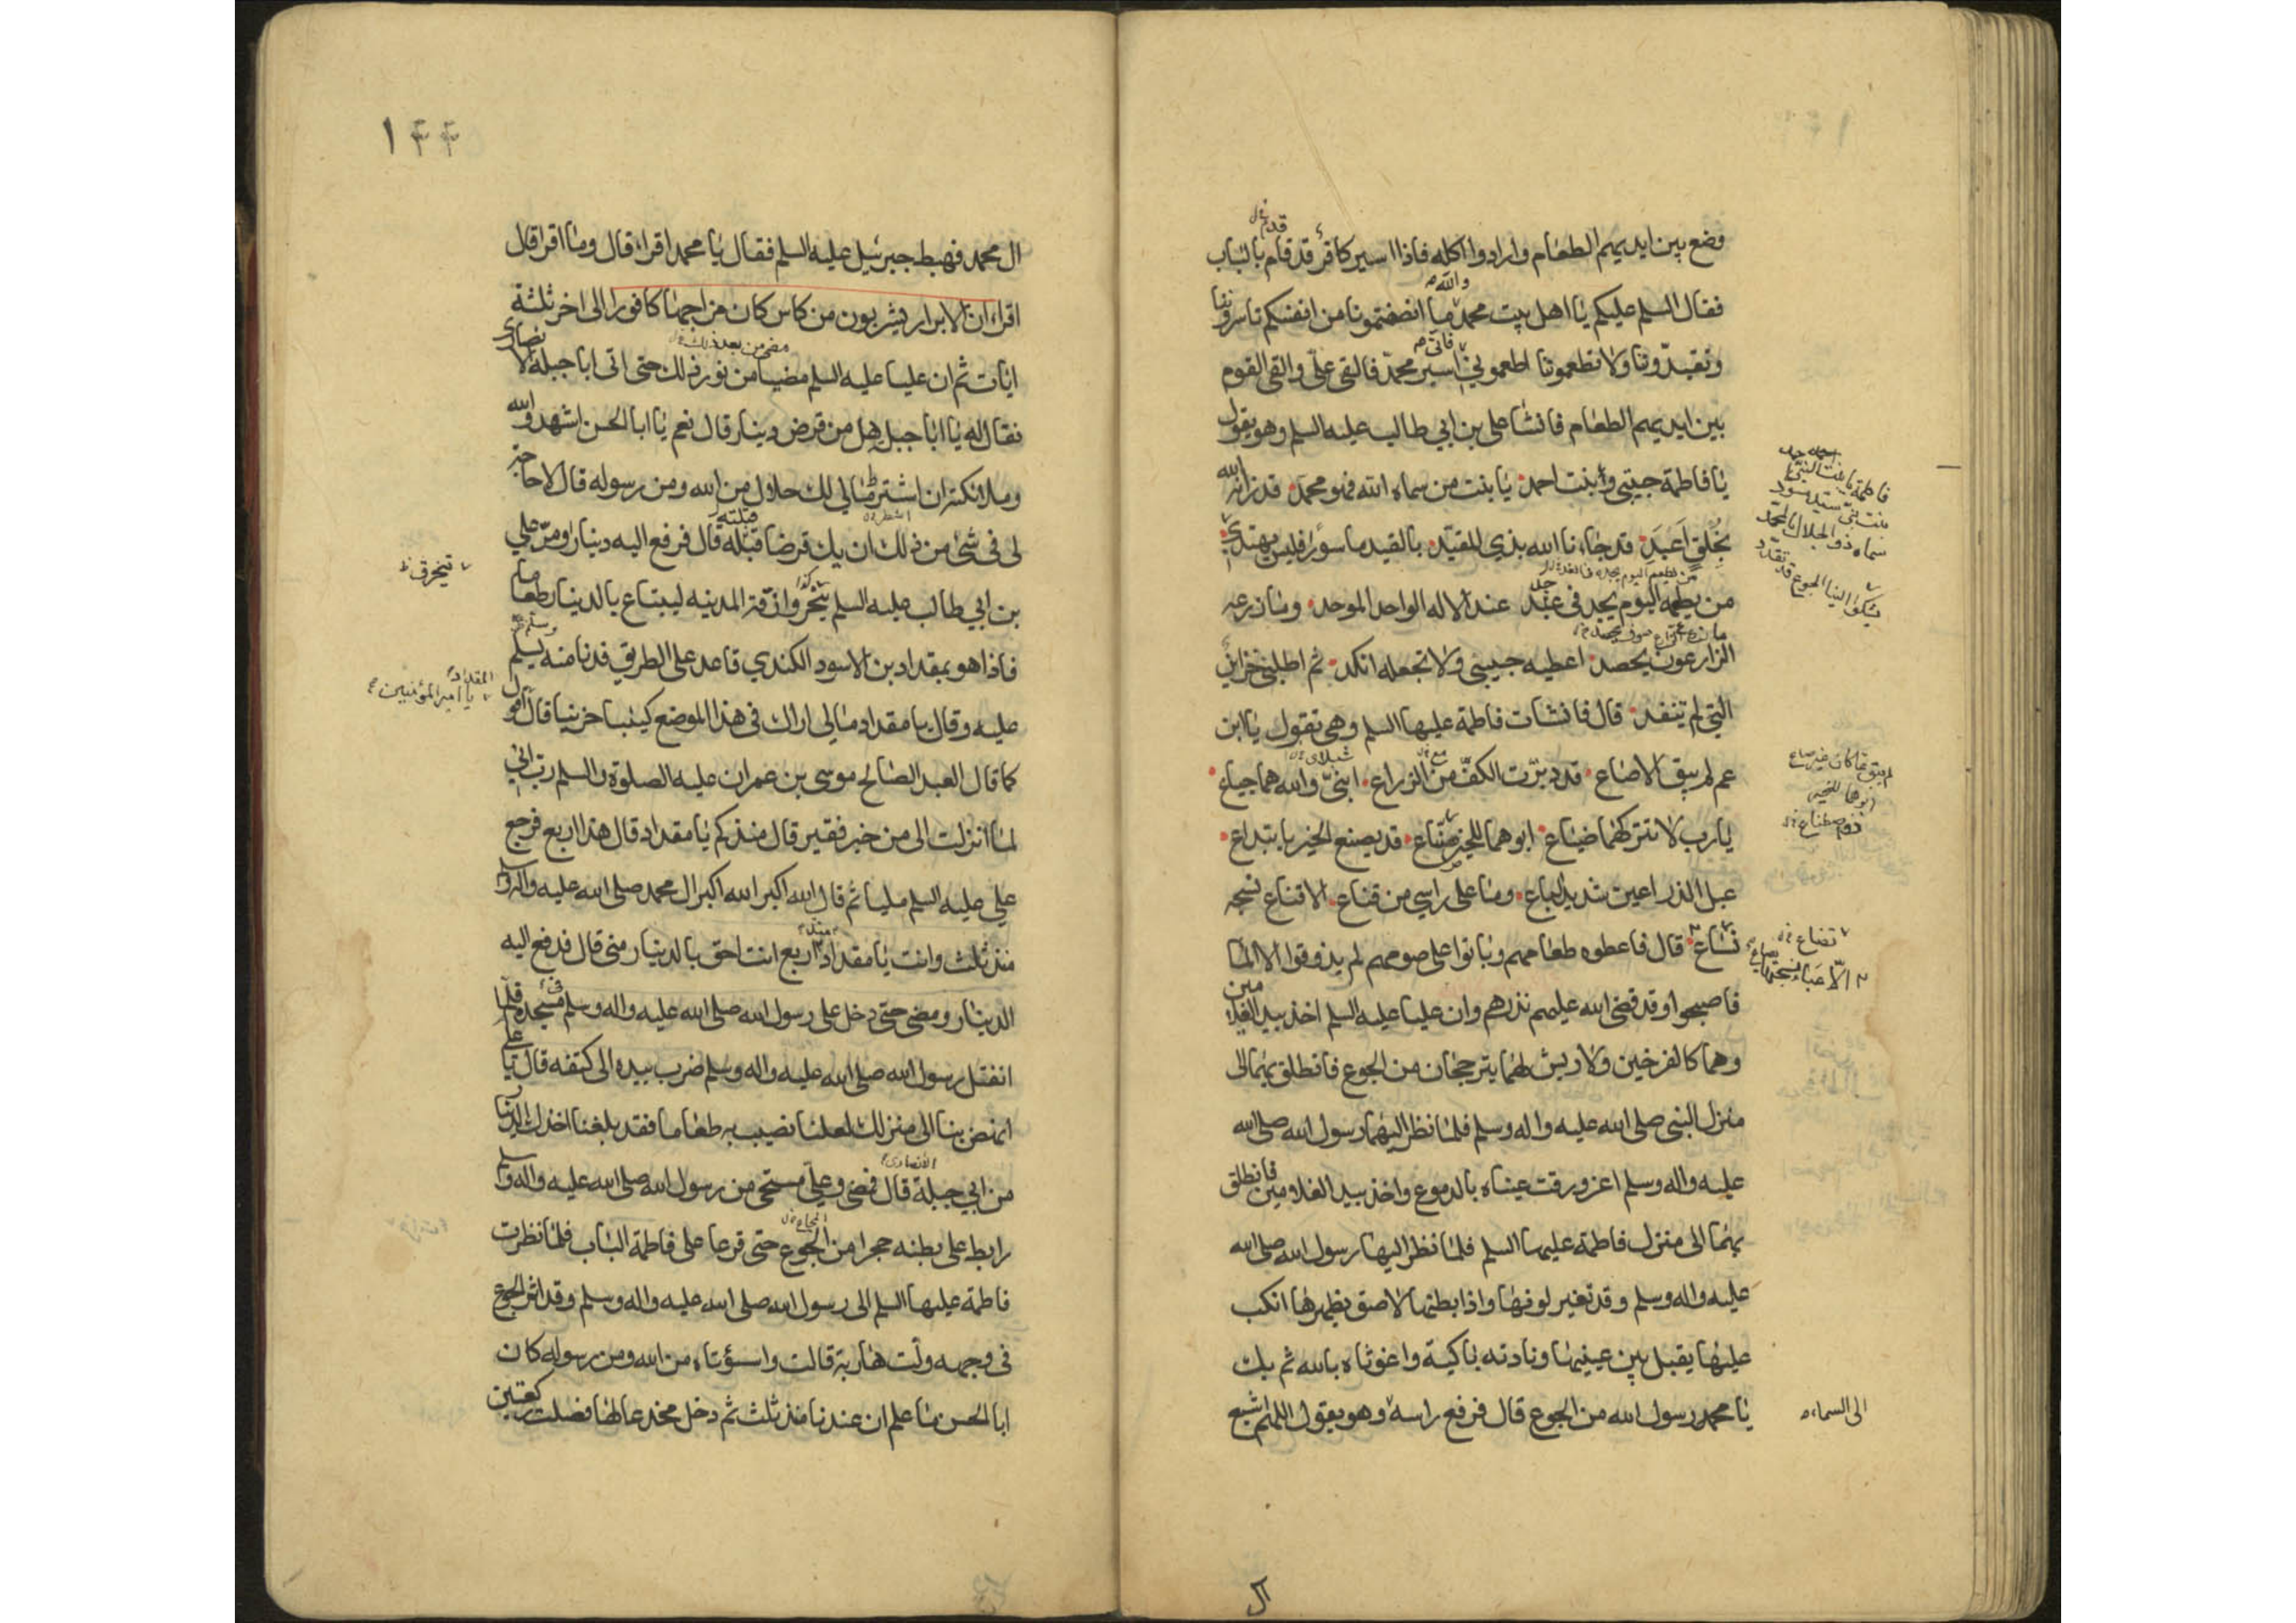 وضع بين ايديهم الطعام وارادوا اكله فاذا اسير كافر قد قام بالباب
فقال السلم عليكم يا اهل بيت محمد ما انصفتمونا من انفسكم تاسروننا
وتقيدوننا ولا تطعمونا اطعموني اسير محمد فالقى علي والقى القوم
بين ايديهم الطعام فانشا علي بن ابي طالب عليه السلم وهو يقول
يا فاطمة حبيبتي وبنت احمد يا بنت من سماه الله فهو محمد قد زانه الله
بخلق اغيد قد جاءنا الله بذي المقيد بالقيد ماسور فليس يهتدي
من يطعم اليوم يجد في غد عند الاله الواحد الموحد وما زرعه
الزارعون يحصد اعطيه حبيبتي ولا تجعله انكد ثم اطلبي خزاين
التي لم تنفد قال فانشات فاطمة عليها السلم وهي تقول يا ابن
عم لم يبق الا صاع قد دبرت الكف من الزراع ابني والله هما جياع
يا رب لا تتركهما ضياع ابوهما للخير صناع قد يصنع الخير بابتداع
عبل الذراعين شديد الباع وما على راسي من قناع الا قناع نسجه
نساع قال فاعطوه طعامهم وباتوا على صومهم لم يذوقوا الا الما
فاصبحوا وقد قضى الله عليهم نذرهم وان عليا عليه السلم اخذ بيد الغلامين
وهما كالفرخين ولا ريش لهما يترججان من الجوع فانطلق بهما الى
منزل النبي صلى الله عليه واله وسلم فلما نظر اليهما رسول الله صلى الله
عليه واله وسلم اغرورقت عيناه بالدموع واخذ بيد الغلامين فانطلق
بهما الى منزل فاطمة عليها السلم فلما نظر اليها رسول الله صلى الله
عليه واله وسلم وقد تغير لونها واذا بطنها لاصق بظهرها انكب
عليها يقبل بين عينيها ونادته باكية واغوثاه بالله ثم بك
يا محمد رسول الله من الجوع قال فرفع راسه وهو يقول اللهم اشبع
الى السماء
ال
١٤٤
ال محمد فهبط جبرئيل عليه السلم فقال يا محمد اقرا، قال وما اقرا قال
اقرا، ان الابرار يشربون من كاس كان مزاجها كافورا الى اخر ثلثة
ايات ثم ان عليا عليه السلم مضى من فور ذلك حتى اتى ابا جبلة الانصاري
فقال له يا ابا جبلة هل من قرض دينار قال نعم يا ابا الحسن اشهد الله
وملائكته ان اشتر مالي لك حلال من الله ومن رسوله قال لا حاجة
لي في شئ من ذلك ان يك قرضا قبلته قال فرفع اليه دينارا ومر علي
بن ابي طالب عليه السلم يتخرق ازقة المدينه ليبتاع بالدينار طعاما
فاذا هو بمقداد بن الاسود الكندي قاعد على الطريق فدنا منه يسلم
عليه وقال يا مقداد مالي اراك في هذا الموضع كئيبا حزينا قال اقول
كما قال العبد الصالح موسى بن عمران عليه الصلوة والسلم رب اني
لما انزلت الى من خير فقير قال منذ كم يا مقداد قال هذا اربع فرجع
علي عليه السلم مليا ثم قال الله اكبر الله اكبر ال محمد صلى الله عليه واله وسلم
منذ ثلث وانت يا مقداد اربع انت احق بالدينار مني قال فدفع اليه
الدينار ومضى حتى دخل على رسول الله صلى الله عليه واله وسلم في مسجده فلما
انفتل رسول الله صلى الله عليه واله وسلم ضرب بيده الى كتفه قال يا علي
انهض بنا الى منزلك لعلنا نصيب به طعاما فقد بلغنا اخذك الدينار
من ابي جبلة قال فمضى وعلي مستحي من رسول الله صلى الله عليه واله وسلم
رابط على بطنه حجرا من الجوع حتى قرعا على فاطمة الباب فلما نظرت
فاطمة عليها السلم الى رسول الله صلى الله عليه واله وسلم وقد اثر الجوع
في وجهه ولت هاربة قالت واسؤتاه من الله ومن رسوله كان
ابا الحسن ما علم ان عندنا منذ ثلث ثم دخل مخدعا لها فصلت ركعتين